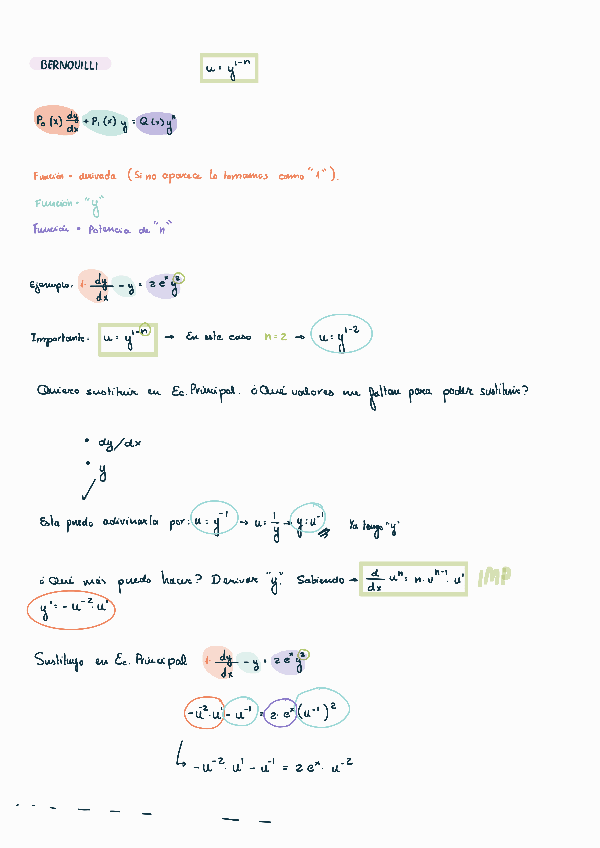 BERNOUILLI
u = y^{1-n}
P₀(x) dy/dx + P₁(x) y = Q(x) yⁿ
Función - derivada (Si no aparece lo tomamos como "1").
Función - "y"
Función - Potencia de "n"
Ejemplo: 1· dy/dx - y = 2 eˣ y²
Importante: u = y^{1-n} → En este caso n=2 → u = y^{1-2}
Quiero sustituir en Ec. Principal. ¿Qué valores me faltan para poder sustituir?
• dy/dx
• y
Esta puedo adivinarla por: u = y⁻¹ → u = 1/y → y = u⁻¹ Ya tengo "y"
¿Qué más puedo hacer? Derivar "y". Sabiendo → d/dx uⁿ = n · uⁿ⁻¹ · u' IMP
y' = - u⁻² · u'
Sustituyo en Ec. Principal 1· dy/dx - y = 2 eˣ y²
- u⁻² · u' - u⁻¹ = 2 · eˣ (u⁻¹)²
↳ - u⁻² · u' - u⁻¹ = 2 eˣ · u⁻²